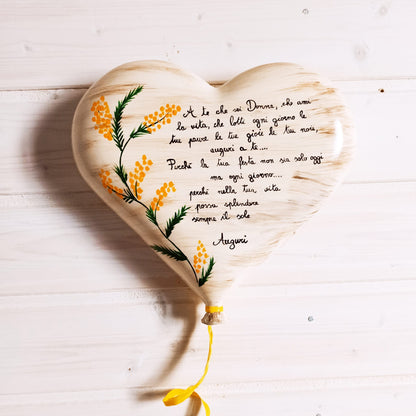 A te che sei Donna, che ami
la vita, che lotti ogni giorno le
tue paure le tue gioie le tue noie,
auguri a te....
Perché la tua festa non sia solo oggi
ma ogni giorno....
perché nella tua vita
possa splendere
sempre il sole
Auguri